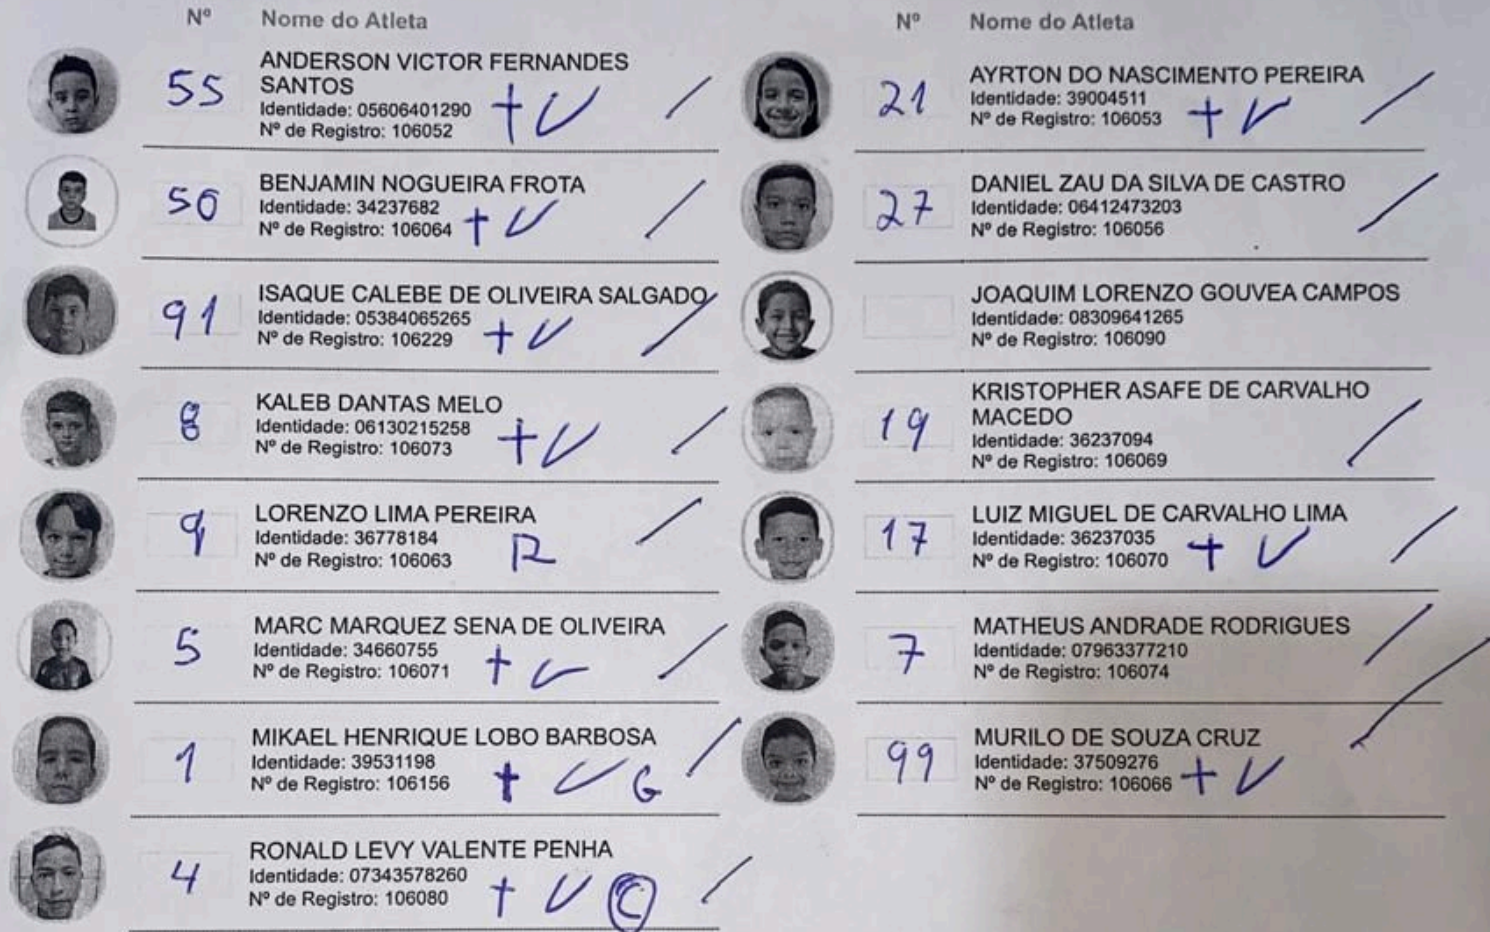 Nº Nome do Atleta
55 ANDERSON VICTOR FERNANDES
SANTOS
Identidade: 05606401290
Nº de Registro: 106052 + V /
50 BENJAMIN NOGUEIRA FROTA
Identidade: 34237682
Nº de Registro: 106064 + V /
91 ISAQUE CALEBE DE OLIVEIRA SALGADO
Identidade: 05384065265
Nº de Registro: 106229 + V /
8 KALEB DANTAS MELO
Identidade: 06130215258
Nº de Registro: 106073 + V /
9 LORENZO LIMA PEREIRA
Identidade: 36778184
Nº de Registro: 106063 R /
5 MARC MARQUEZ SENA DE OLIVEIRA
Identidade: 34660755
Nº de Registro: 106071 + V /
1 MIKAEL HENRIQUE LOBO BARBOSA
Identidade: 39531198
Nº de Registro: 106156 + V G /
4 RONALD LEVY VALENTE PENHA
Identidade: 07343578260
Nº de Registro: 106080 + V C /
Nº Nome do Atleta
21 AYRTON DO NASCIMENTO PEREIRA
Identidade: 39004511
Nº de Registro: 106053 + V /
27 DANIEL ZAU DA SILVA DE CASTRO
Identidade: 06412473203
Nº de Registro: 106056 /
JOAQUIM LORENZO GOUVEA CAMPOS
Identidade: 08309641265
Nº de Registro: 106090
19 KRISTOPHER ASAFE DE CARVALHO
MACEDO
Identidade: 36237094
Nº de Registro: 106069 /
17 LUIZ MIGUEL DE CARVALHO LIMA
Identidade: 36237035
Nº de Registro: 106070 + V /
7 MATHEUS ANDRADE RODRIGUES
Identidade: 07963377210
Nº de Registro: 106074 /
99 MURILO DE SOUZA CRUZ
Identidade: 37509276
Nº de Registro: 106066 + V /